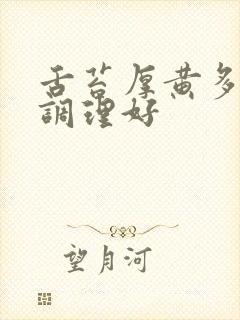 舌苔厚黄多
調理好
望月河